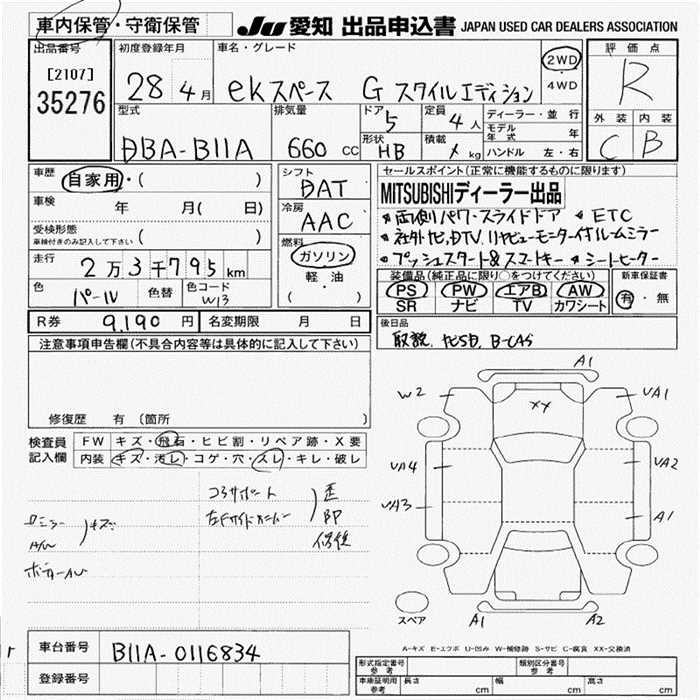 車内保管・守衛保管
JU 愛知 出品申込書 JAPAN USED CAR DEALERS ASSOCIATION
出品番号
[2107]
35276
初度登録年月
28 4月
車名・グレード
ekスペース G スタイルエディション
2WD
・
4WD
評価点
R
外装 内装
C B
型式
DBA-B11A
排気量
660 CC
ドア
5
形状
HB
定員
4人
積載
kg
ディーラー・並行
モデル年式 年
ハンドル 左・右
車歴
自家用・( )
車検 年 月( 日)
受検形態
車検付きのみ記入して下さい ( )
走行
2万3千795km
色
パール
色替
色コード
W13
シフト
DAT
冷房
AAC
燃料
ガソリン
・
軽・油
( )
セールスポイント(正常に機能するものに限ります)
MITSUBISHIディーラー出品
両側パワースライドドア ETC
社外ナビ,DTV.リヤビューモニター付ルームミラー
プッシュスタート&スマートキー シートヒーター
装備品(純正品に限り○をつけてください)
PS PW エアB AW
SR ナビ TV カワシート
新車保証書
有・無
R券 9,190円
名変期限 月 日
後日品
取説, ナビSD, B-CAS
注意事項申告欄(不具合内容等は具体的に記入して下さい)
修復歴 有(箇所 )
検査員
記入欄
FW キズ・飛石・ヒビ割・リペア跡・X要
内装 キズ・汚レ・コゲ・穴・スレ・キレ・破レ
コアサポート
歪
即
修復
キズ
A/W
A1
W2
UA1
XX
UA4
UA2
UA3
A1
A1
A2
スペア
A-キズ E-エクボ U-凹み W-補修跡 S-サビ C-腐食 XX-交換済
車台番号 B11A-0116834
登録番号
形式指定番号
参考
類別区分番号
参考
車庫証明用
参考
長さ cm
幅 cm
高さ cm